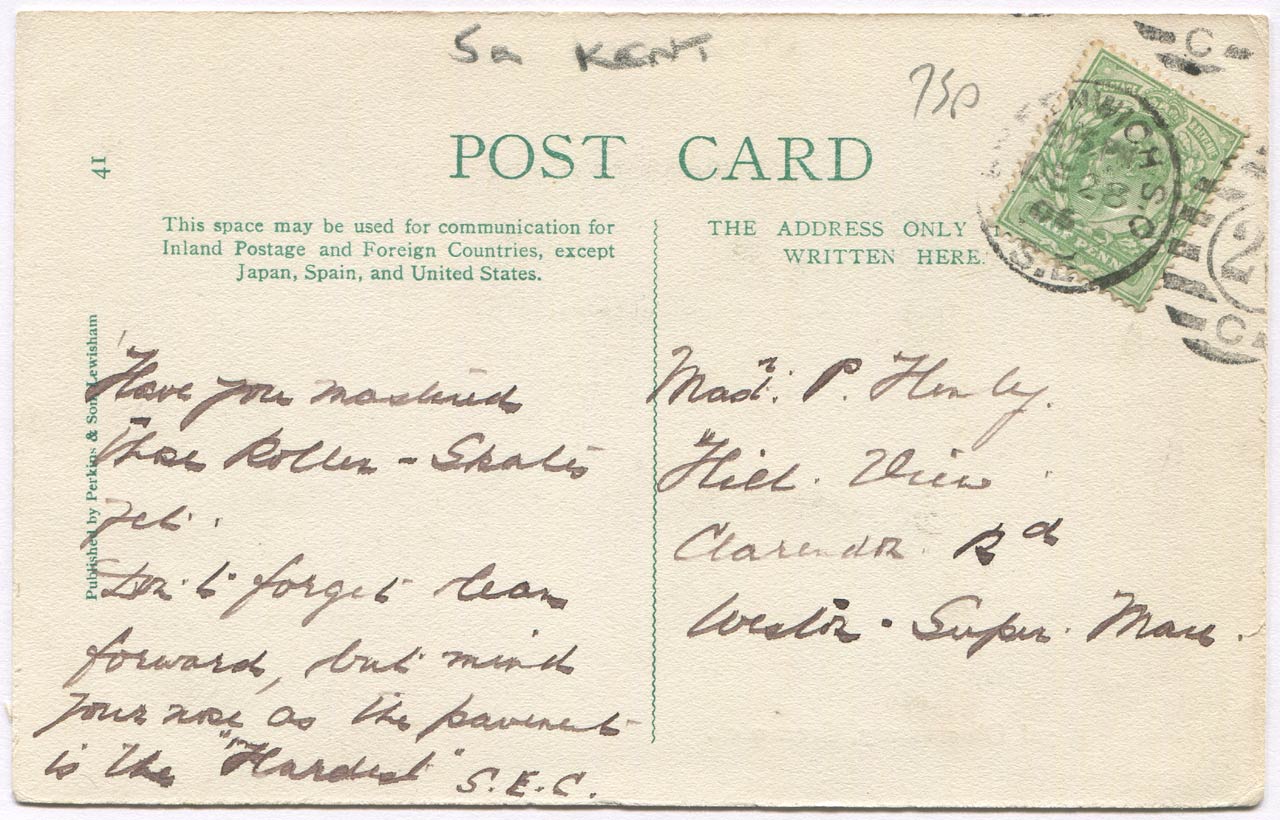 5a KENT
75p
POST CARD
41
This space may be used for communication for
Inland Postage and Foreign Countries, except
Japan, Spain, and United States.
THE ADDRESS ONLY
WRITTEN HERE.
Published by Perkins & Son Lewisham
Have you mastered
those Roller-Skates
yet.
Don't forget lean
forward, but mind
your nose as the pavement
is the "Hardest" S.E.C.
Mastr. P. Henly.
Hill View
Clarendon Rd
Weston-Super-Mare.
GREENWICH S.O
28
S.E
C
2
C